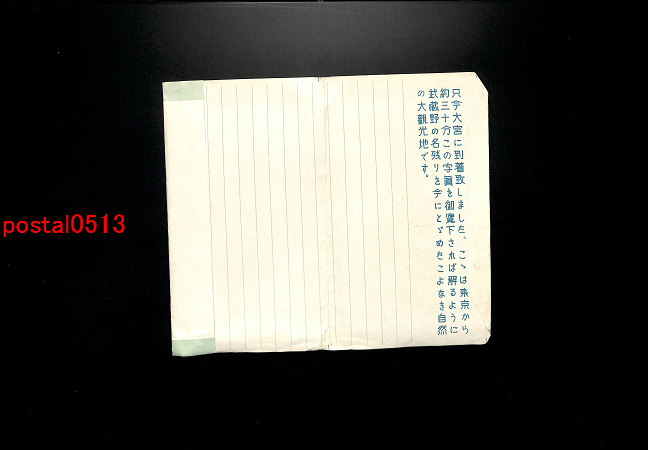 只今大宮に到着致しました。こゝは東京から
約三十分この写眞を御覽下されば解るように
武蔵野の名残りを今にとゞめたこよなき自然
の大觀光地です。
postal0513